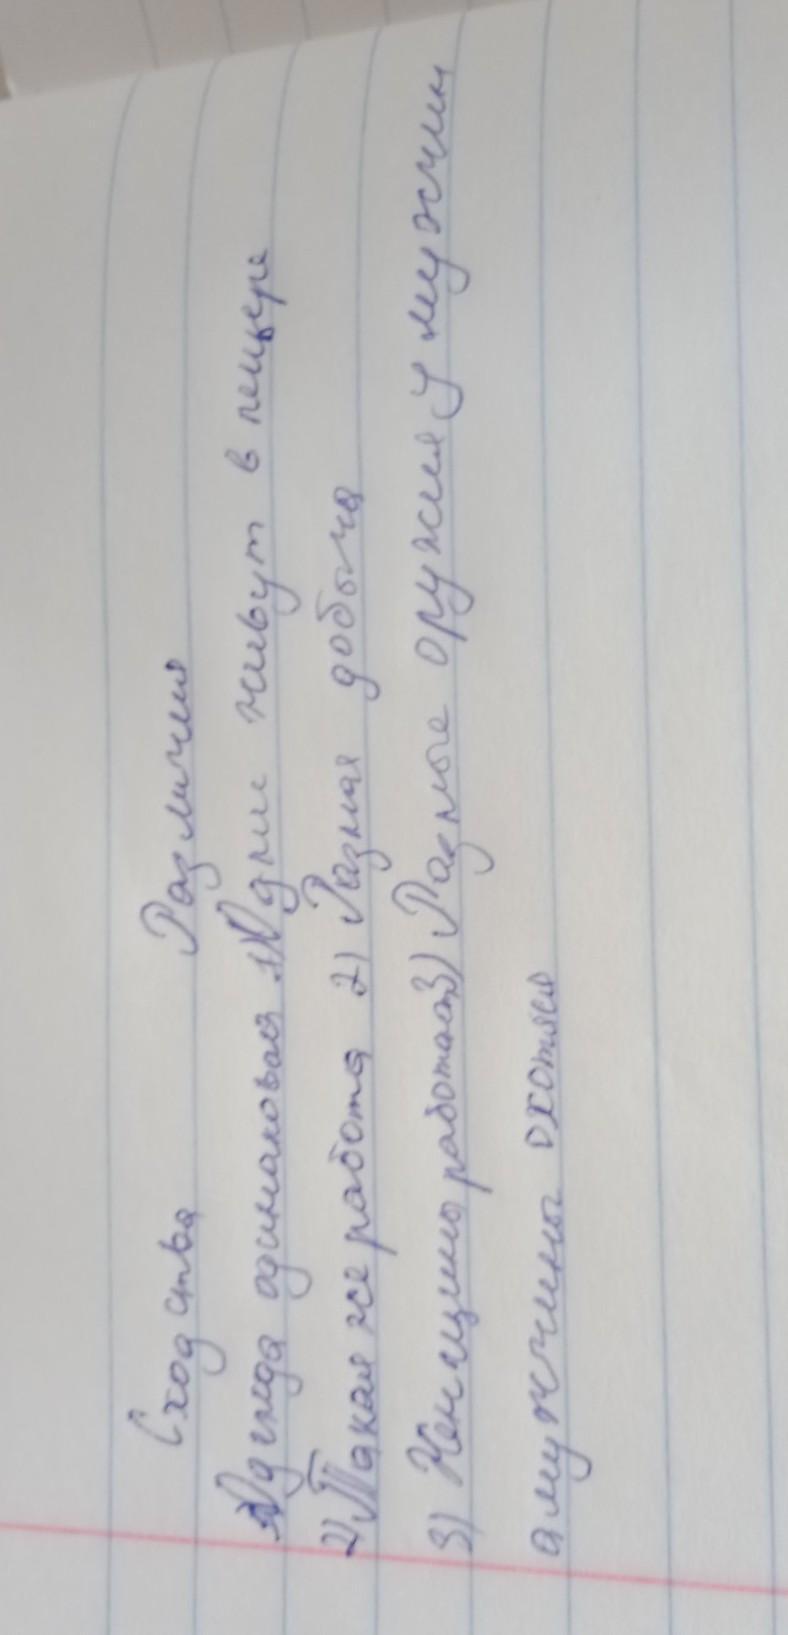 Сходства Различия
1) Одежда одинаковая 1) Одни живут в пещере
2) Такая же работа 2) Разная добыча
3) Женщины работают 3) Разные оружия у мужчин
а мужчины охотяся